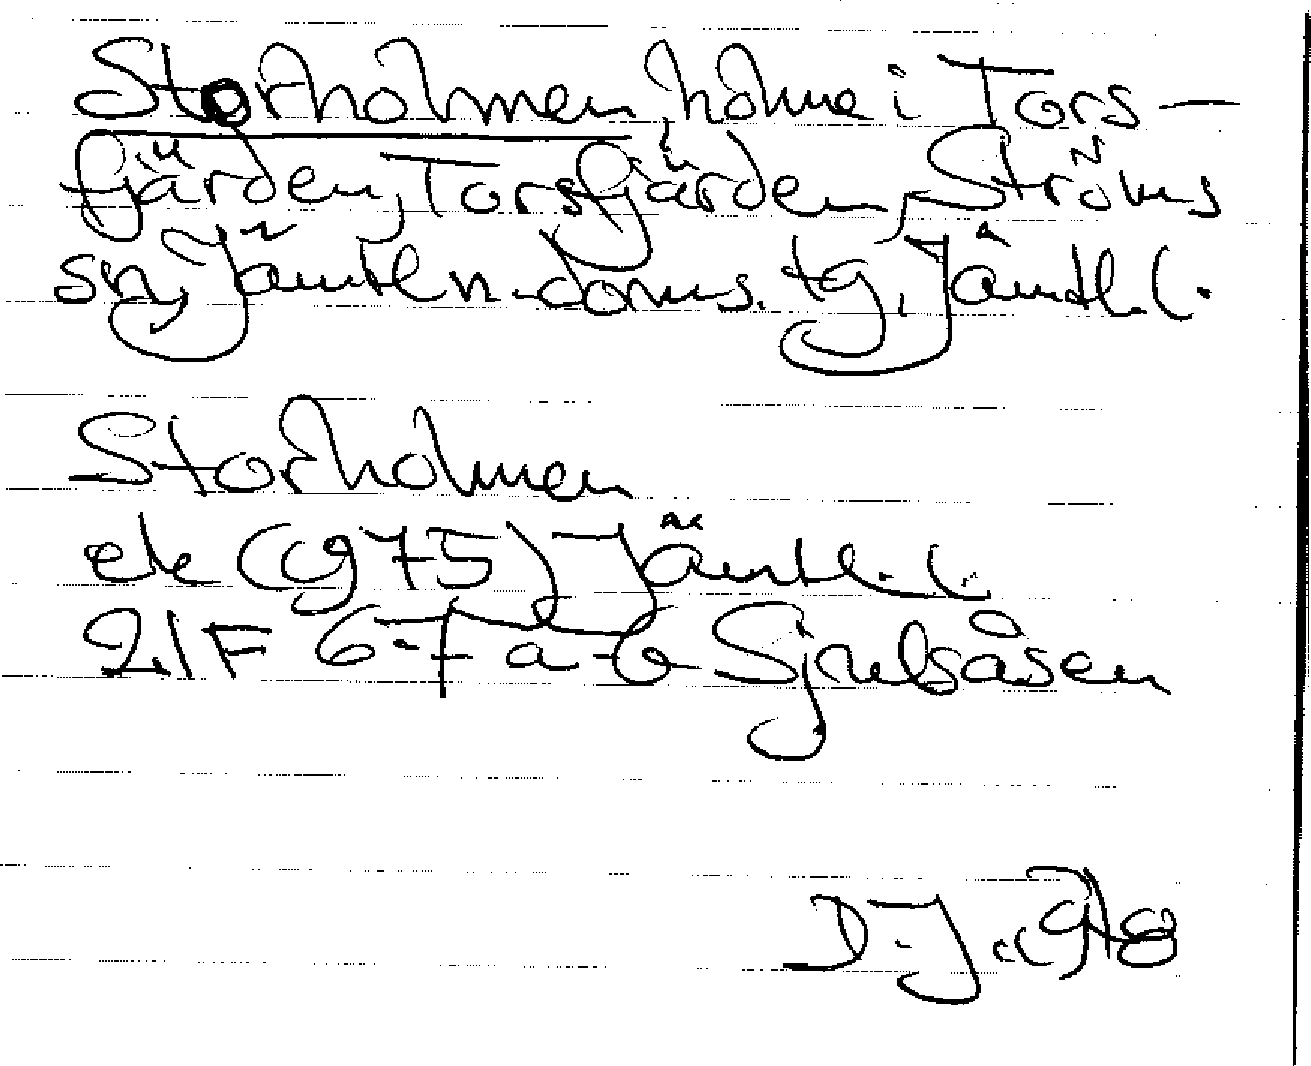 Storholmen holme i Tors-
fjärden, Torsfjärden, Ströms
sn, Jämtl n. doms. tg, Jämtl. l.
Storholmen
ek (1975) Jämtl. l.
21F 6-7 a-b Sjulsåsen
D-J 1978